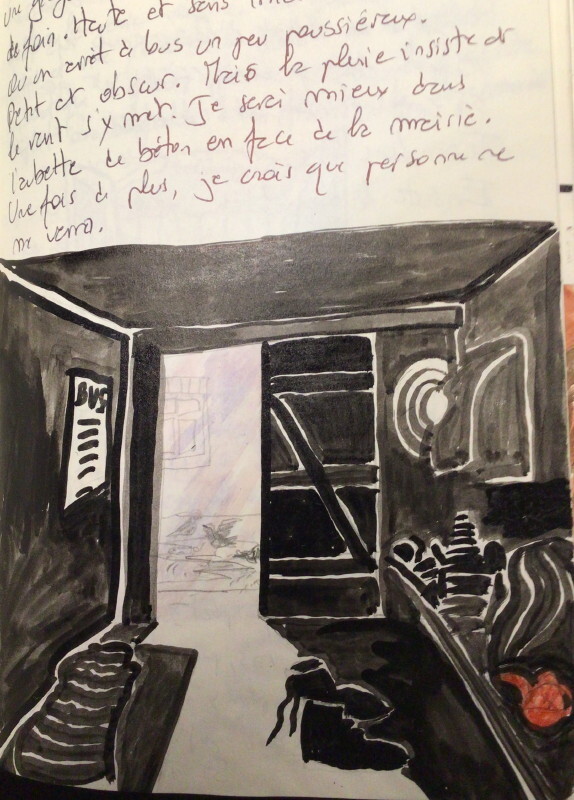 de foin. Haute et sans
ou un arrêt à bus un peu poussiéreux.
Petit et obscur. Mais la pluie insiste et
le vent s'y met. Je serai mieux dans
l'aubette de béton en face de la mairie.
Une fois de plus, je crois que personne ne
me verra.
BUS